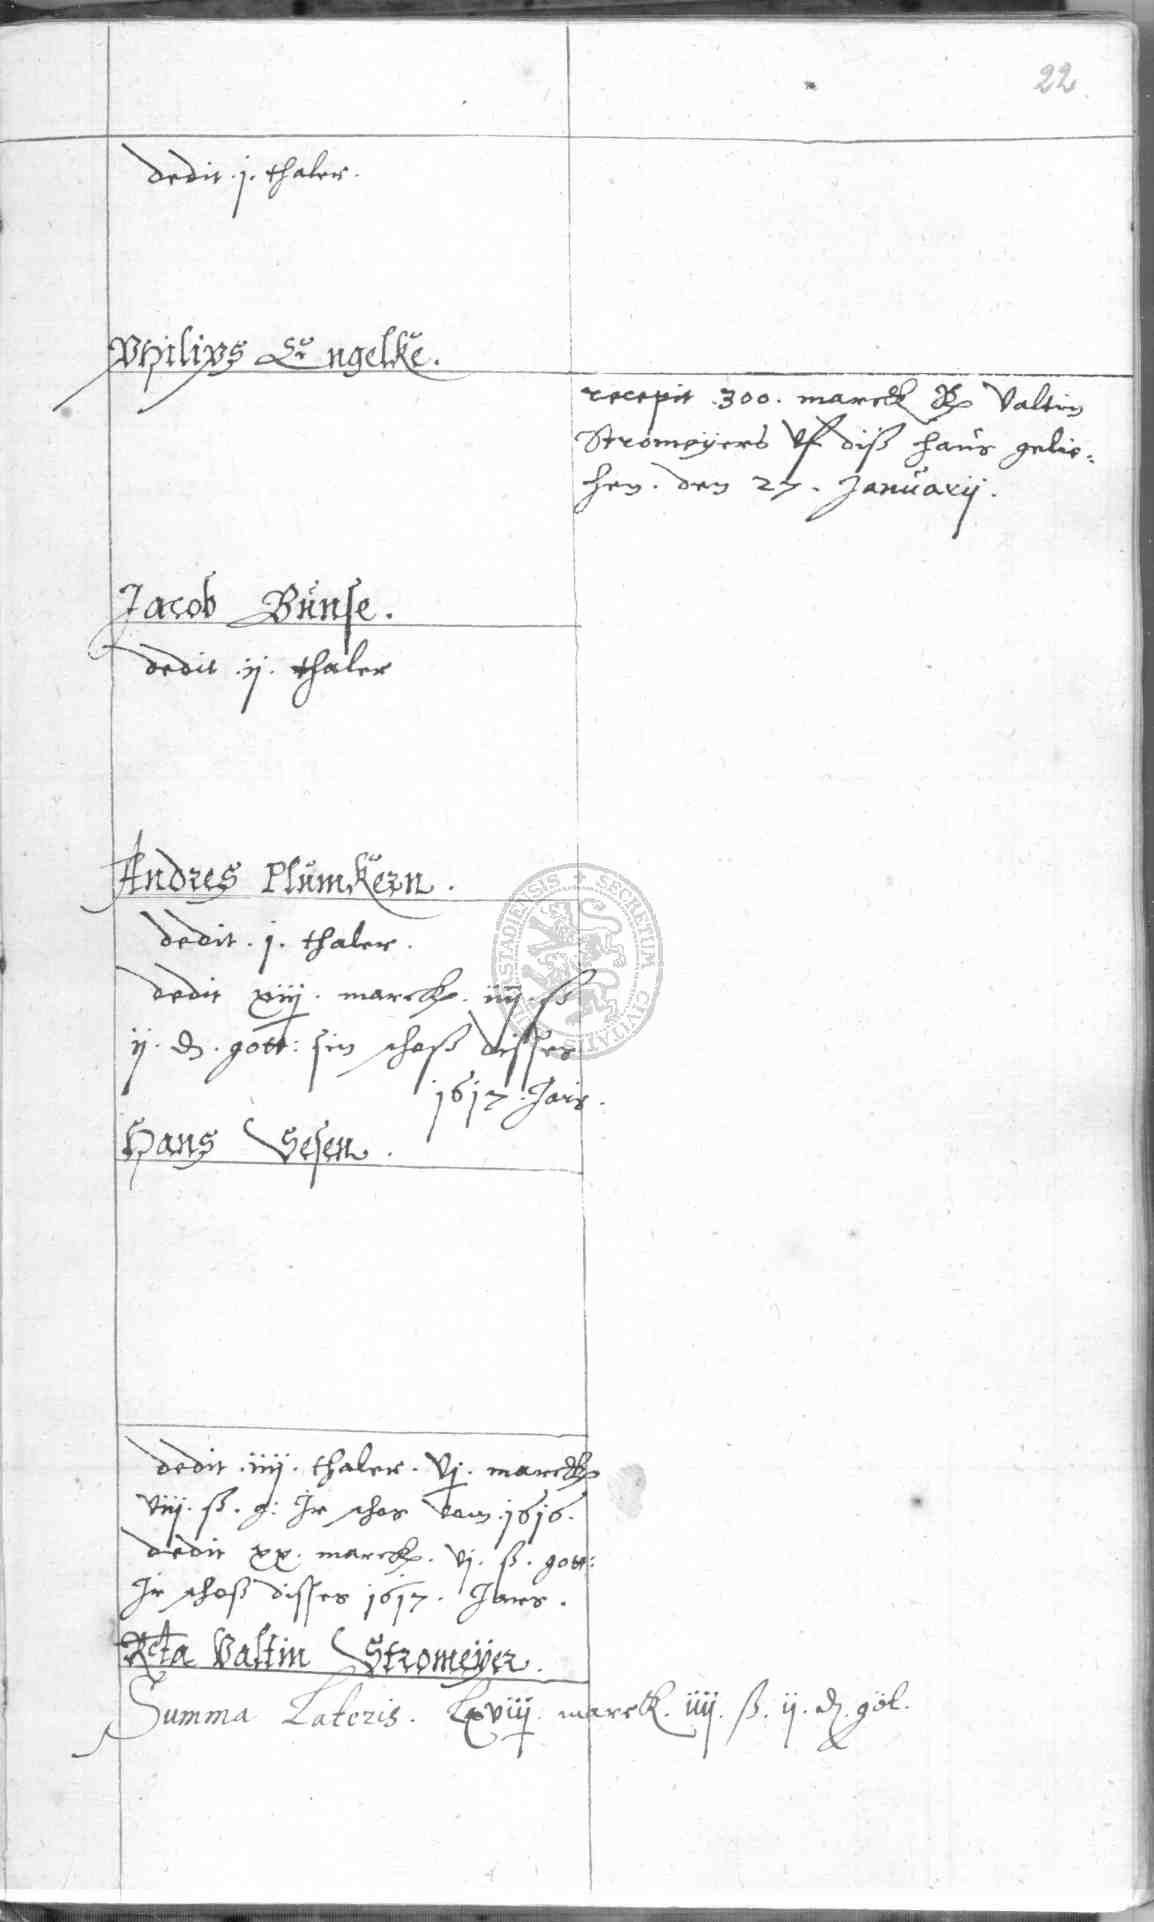 22
dedit . j . thaler .
Philips Engelke .
recepit . 300 . marck Valtin
Stromeÿers vf diß haus gelie=
hen . den 27 . Januarij .
Jacob Bunse .
dedit . ij . thaler
Andres Plumkern .
dedit . j . thaler .
dedit xiij . marck . iiij . ß
ij . d . gott : sin schoß disses
1617 . Jars .
Hans Sesen .
dedit . iiij . thaler . vj . marck
viij . ß . g : Jr schos vom . 1616 .
dedit xx . marck . vj . ß . gott :
Jr schoß disses 1617 . Jars .
Rcta Valtin Stromeÿer .
Summa Lateris . Lxviij . marck . iiij . ß . ij . d . got .
SECRETUM CIVITATIS HALBERSTADIENSIS